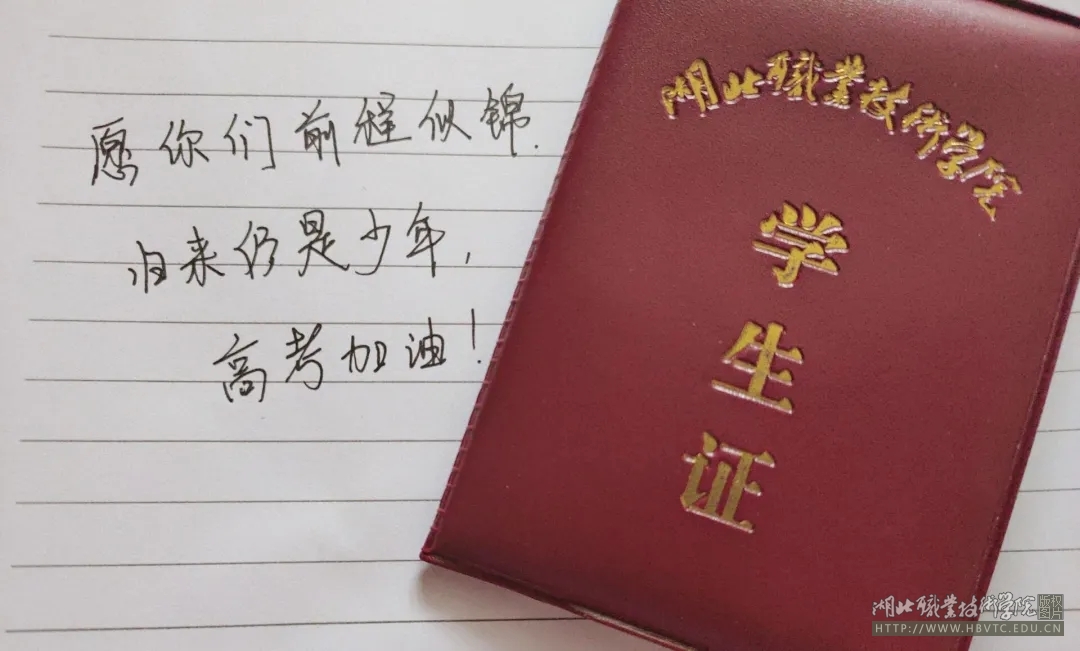 愿你们前程似锦.
归来仍是少年,
高考加油!
湖北职业技术学院
学
生
证
湖北职业技术学院 版权图片
HTTP://WWW.HBVTC.EDU.CN